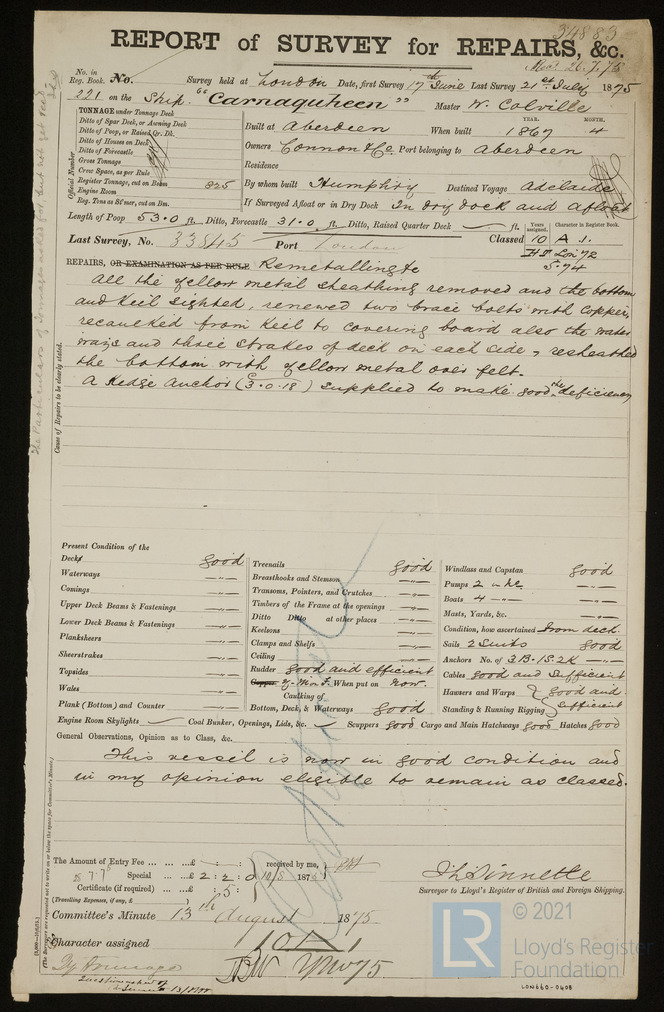 34883
REPORT of SURVEY for REPAIRS, &c.
No. in Reg. Book. No. Survey held at London Date, first Survey 17th June Last Survey 21st July 1875
221 on the Ship "Carnaquheen" Master W. Colville
TONNAGE under Tonnage Deck
Ditto of Spar Deck, or Awning Deck
Ditto of Poop, or Raised Qr. Dk.
Ditto of Houses on Deck
Ditto of Forecastle
Gross Tonnage
Crew Space, as per Rule
Register Tonnage, cut on Beam 825
Engine Room
Reg. Tons as St'mer, cut on Bm.
Official Number
Built at Aberdeen When built YEAR. 1867 MONTH. 4
Owners Connon & Co Port belonging to Aberdeen
Residence
By whom built Humphry Destined Voyage Adelaide
If Surveyed Afloat or in Dry Dock In dry dock and afloat
Length of Poop 53.0 ft. Ditto, Forecastle 31.0 ft. Ditto, Raised Quarter Deck — ft.
Last Survey, No. 33845 Port London Classed Years assigned. 10 Character in Register Book. A 1.
Lon 72
5.74
REPAIRS, OR EXAMINATION AS PER RULE Remetalling &c
All the yellow metal sheathing removed and the bottom
and keil sighted, renewed two brace bolts with copper,
recaulked from keil to covering board also the water
ways and three strakes of deck on each side, resheathed
the bottom with yellow metal over felt.
A Kedge Anchor (3.0.18) supplied to make good the deficiency
Cause of Repairs to be clearly stated.
Present Condition of the
Decks good
Waterways —"—
Comings —"—
Upper Deck Beams & Fastenings —"—
Lower Deck Beams & Fastenings —"—
Planksheers —"—
Sheerstrakes —"—
Topsides —"—
Wales —"—
Plank (Bottom) and Counter —"—
Treenails good
Breasthooks and Stemson —"—
Transoms, Pointers, and Crutches —"—
Timbers of the Frame at the openings —"—
Ditto Ditto at other places —"—
Keelsons —"—
Clamps and Shelfs —"—
Ceiling —"—
Rudder good and efficient
Copper Y. Met. F. When put on Now.
Caulking of
Bottom, Deck, & Waterways good
Windlass and Capstan good
Pumps 2 in No —"—
Boats 4 —"— —"—
Masts, Yards, &c. —"—
Condition, how ascertained From deck
Sails 2 Suits good
Anchors No. of 3B.1S.2K —"—
Cables good and Sufficient
Hawsers and Warps } good and
Standing & Running Rigging } Sufficient
Engine Room Skylights — Coal Bunker, Openings, Lids, &c. — Scuppers good Cargo and Main Hatchways good Hatches good
General Observations, Opinion as to Class, &c.
This vessel is now in good condition and
in my opinion eligible to remain as classed.
The Amount of Entry Fee ... ... ... £ : : received by me,
Special ... ... £ 2 : 2 : 0 10/8 187
Certificate (if required) ... £ : 5 :
(Travelling Expenses, if any, £ )
Surveyor to Lloyd's Register of British and Foreign Shipping.
Committee's Minute 13th August 1875.
Character assigned 10 A 1
© 2021
LR
Lloyd's Register
Foundation
LON660-0408